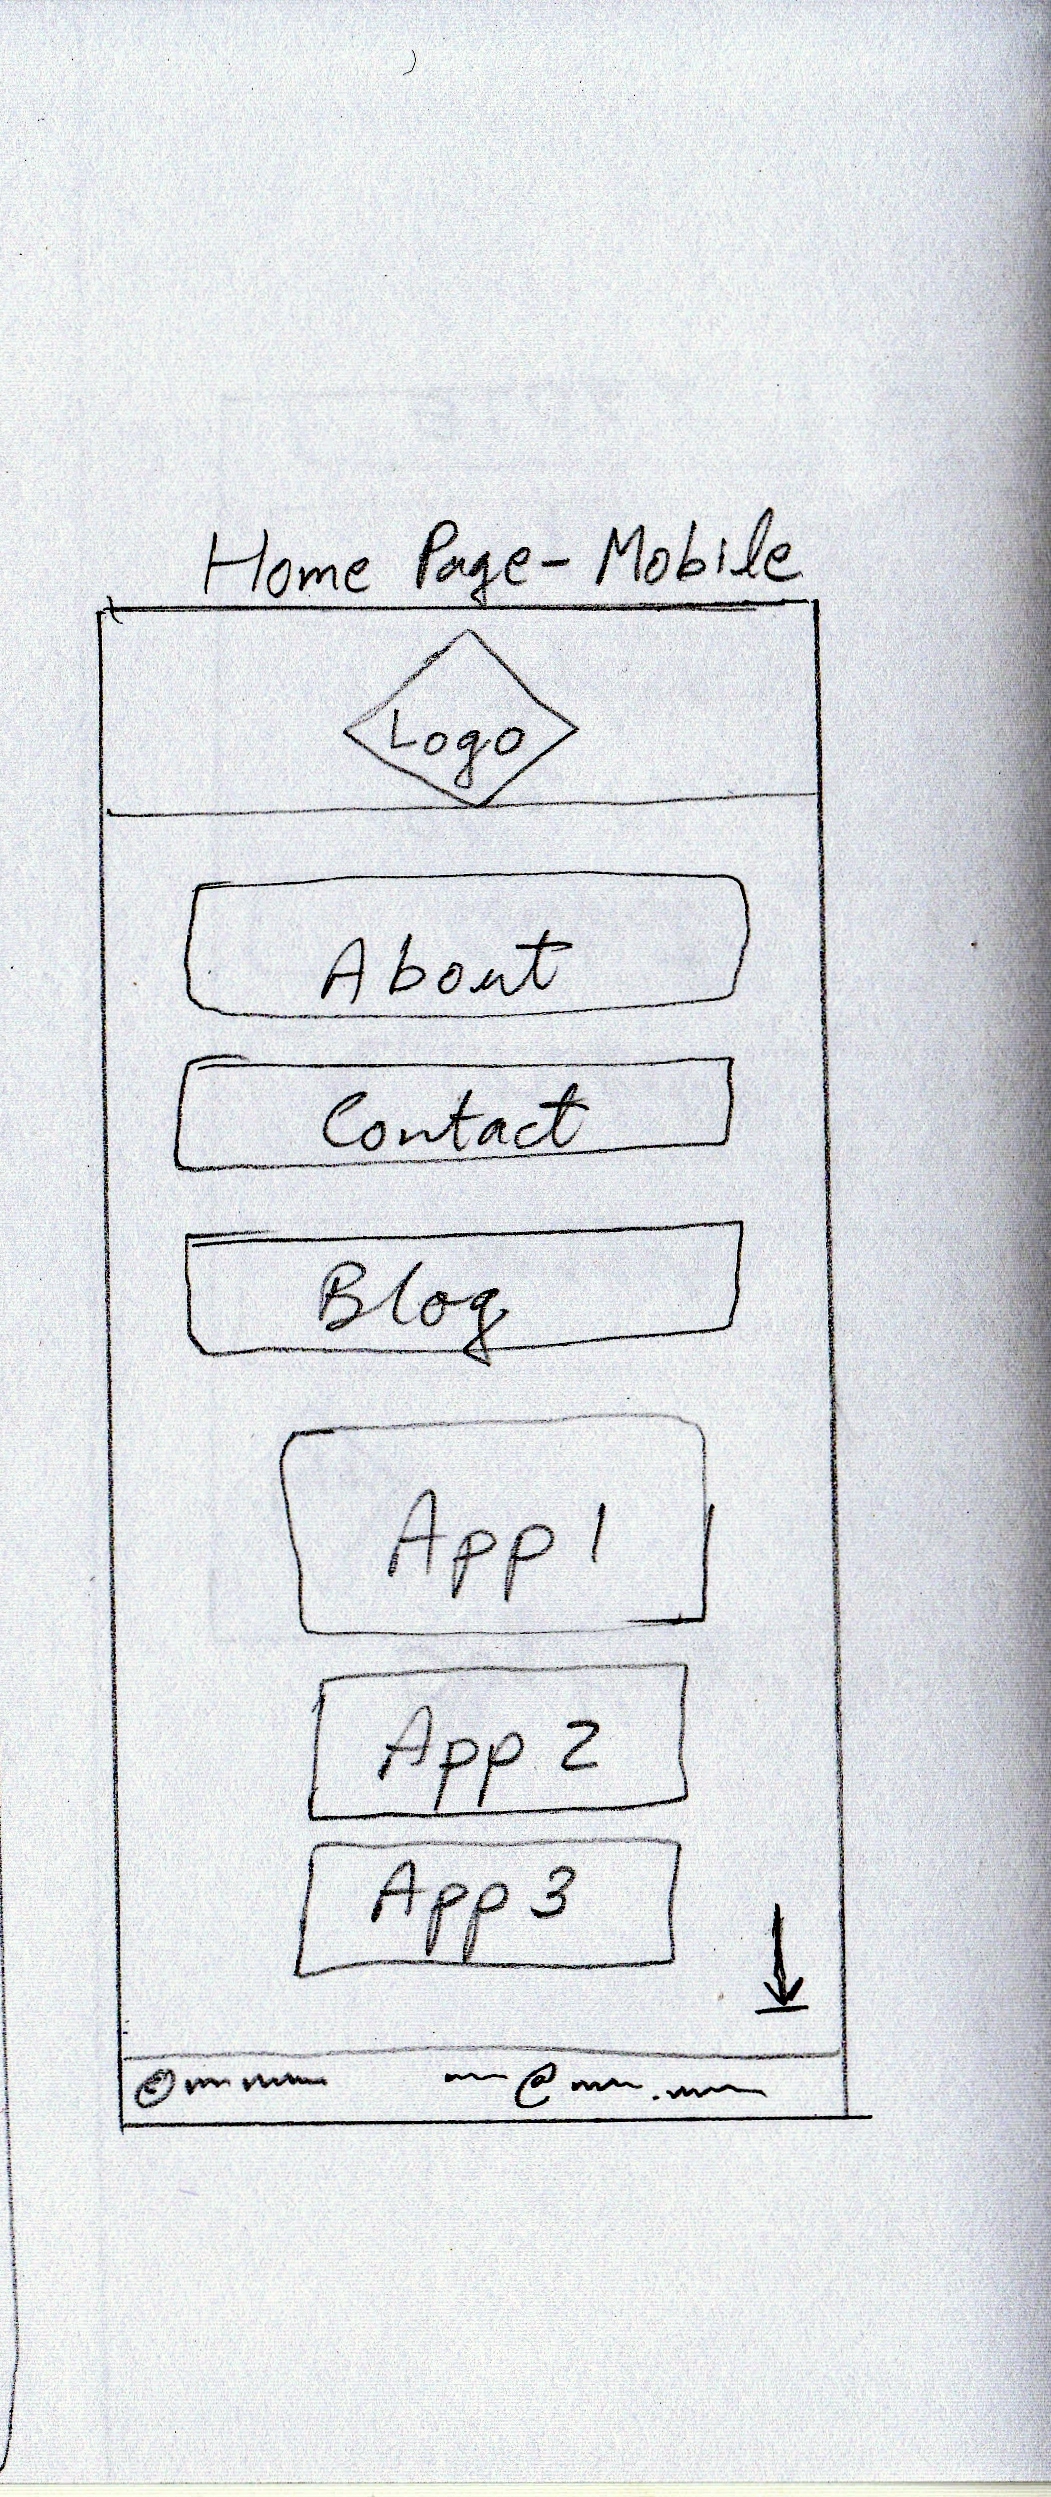 Home Page - Mobile
Logo
About
Contact
Blog
App 1
App 2
App 3
©
@